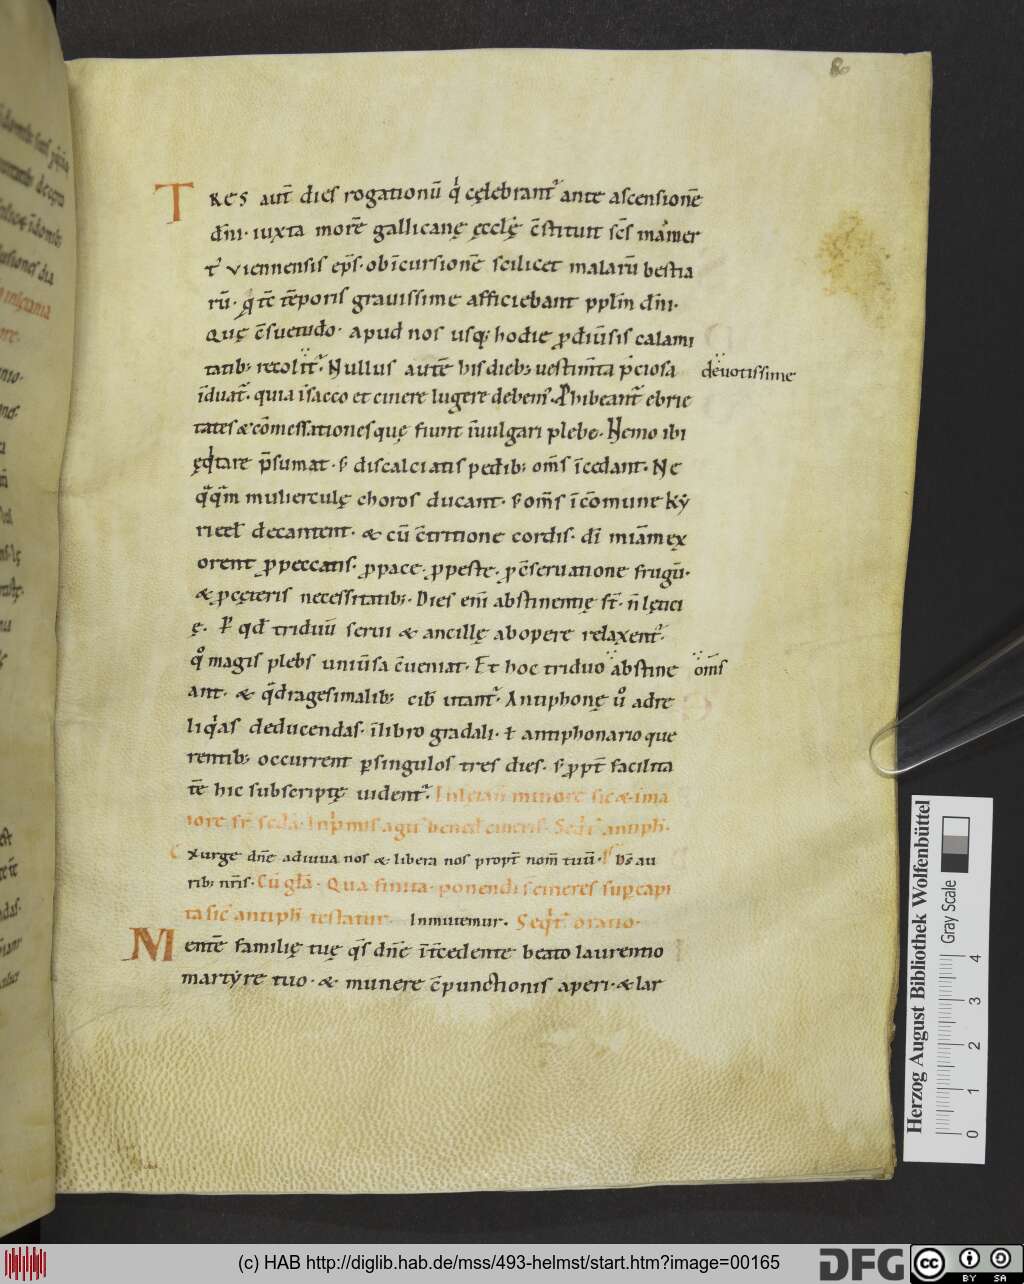 80
TRES aut̄ dies rogationū q̇ cęlebrant᷑ ante ascensionē
dn̄i · iuxta morē gallicanę ęcclę c̄stituit sc̄s mam̄er
t᷑ viennensis ep̄s · ob īcursionē scilicet malarū bestia
rū · q̨ tc̄ tēporis grauissime afficiebant ppl̄m dn̄i ·
Quę c̄suetudo · apud nos usq; hodie ꝓdiūsis calami
tatib; recolit᷑ · Nullus autē his dieb; uestim̄ta p̄ciosa
deuotissime
īduat᷑ · quia īsacco et cinere lugere debem᷒ · Ꝓhibeant᷑ ebrie
tates & cōmessationes quę fiunt īuulgari plebe · Nemo ibi
ęq̇tare p̄sumat · s᷑ discalciatis pedib; om̄s īcedant · Ne
q̄q̄m mulierculę choros ducant · s᷑ om̄s īcōmune ky
rieel̄ decantent · & cū c̄tritione cordis · dī miām ex
orent ꝓ peccatis · ꝓ pace · ꝓ peste · ꝓ c̄seruatione frugū ·
& ꝓ cęteris necessitatib; · Dies em̄ abstinentię st̄ · n̄ lętici
ę · P̄ qd̄ triduū serui & ancillę ab opere relaxent᷑ ·
q̊ magis plebs uniūsa c̄ueniat · Et hoc triduo abstine
om̄s
ant · & q̄dragesimalib; cib̄ utant᷑ · Antiphonę ů ad re
liq̇as deducendas · īlibro gradali · ł antiphonario que
rentib; occurrent ꝑ singulos tres dies · s᷑ ꝓpt̄ facilita
tē hic subscriptę uident᷑ · In letan̄ minore sic & ima
iore st̄ scd̄a · Inp̄mis agit᷑ bened̄ cineris · Seq̇t᷑ antiph̄ ·
Exurge dn̄e adiuua nos & libera nos propt̄ nom̄ tuū · Ps̄ Ds̄ au
rib; nr̄is · Cū gl̄a · Qua finita · ponendi s̄ cineres suꝑ capi
ta sic antiph̄ testatur · Inmutemur · Seq̇t᷑ oratio ·
Mentē familię tuę q̄s dn̄e īt̄cedente beato laurentio
martyre tuo · & munere c̄punctionis aperi · & lar
Herzog August Bibliothek Wolfenbüttel
Gray Scale
0 1 2 3 4
(c) HAB http://diglib.hab.de/mss/493-helmst/start.htm?image=00165
DFG
cc BY SA